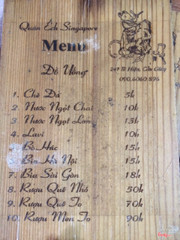 Quán Ếch Singapore
Menu
Đồ Uống
269 Tô Hiệu, Cầu Giấy
1. Chè Đá 5k
2. Nước Ngọt Chai 10k
3. Nước Ngọt Lon 13k
4. Lavi 10k
5. Bò Húc 15k
6. Bia Hà Nội 15k
7. Bia Sài Gòn 18k
8. Rượu Quê Nhỏ 50k
9. Rượu Quê To 70k
10. Rượu Men To 90k